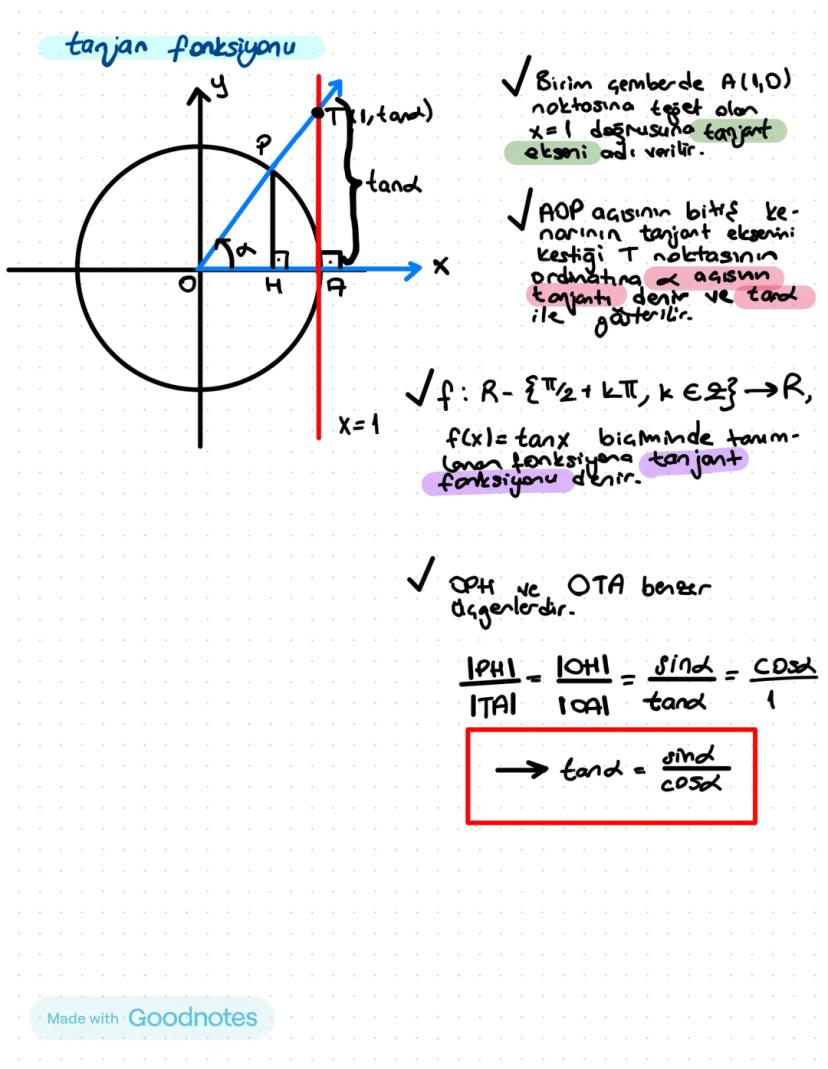 tanjan fonksiyonu
y
T(1, tanα)
P
tanα
α
O
H
A
x
x=1
✓ Birim çemberde A(1,0)
noktasına teğet olan
x=1 doğrusuna tanjant
ekseni adı verilir.
✓ AOP açısının bitiş ke-
narının tanjant eksenini
kestiği T noktasının
ordinatına α açısının
tanjantı denir ve tanα
ile gösterilir.
✓ f: R- {π/2 + kπ, k ∈ Z} → R,
f(x)= tanx biçiminde tanım-
lanan fonksiyona tanjant
fonksiyonu denir.
✓ OPH ve OTA benzer
üçgenlerdir.
|PH|/|TA| = |OH|/|OA| = sinα/tanα = cosα/1
→ tanα = sinα/cosα
Made with Goodnotes